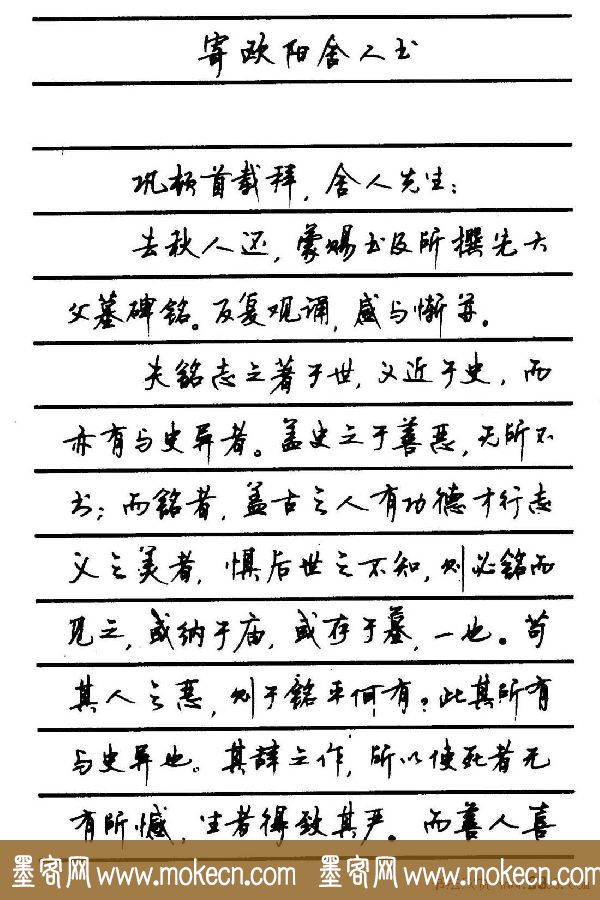 寄欧阳舍人书
巩顿首载拜，舍人先生：
去秋人还，蒙赐书及所撰先大
父墓碑铭。反复观诵，感与惭并。
夫铭志之著于世，义近于史，而
亦有与史异者。盖史之于善恶，无所不
书；而铭者，盖古之人有功德才行志
义之美者，惧后世之不知，则必铭而
见之，或纳于庙，或存于墓，一也。苟
其人之恶，则于铭乎何有？此其所有
与史异也。其辞之作，所以使死者无
有所憾，生者得致其严。而善人喜
墨客网 www.mokecn.com 墨客网 www.mokecn.com